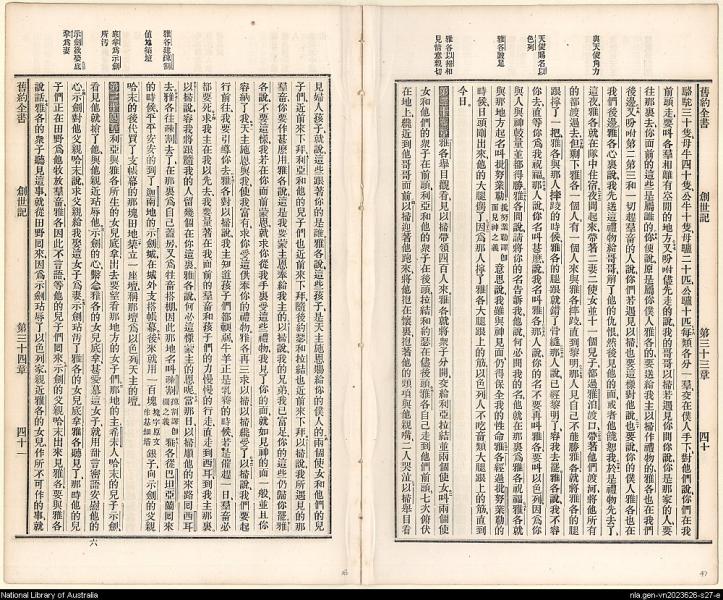 與天使角力
天使賜名以
色列
雅各跛足
雅各以掃和
見情意親切
舊約全書 創世記 第三十三章 四十
駱駝三十隻母牛四十隻公牛十隻母驢二十匹公驢十匹每類各分一羣交在僕人手下對他們說你們在我
前頭走要叫各羣相離有空閒的地方又吩咐儘先走的說我的哥哥以掃若遇見你問你說你是那家的人要
往那裏去你面前的這些是屬誰的你便說原是屬你僕人雅各的要送給我主以掃作禮物的雅各也在我們
後邊又吩咐第二第三和一切趕羣畜的人說你們若遇見以掃也要這樣對他說也要說你的僕人雅各也在
我們後邊雅各心裏說我先送這禮物給哥哥解了他的仇恨然後見他的面或者他饒恕我於是禮物先去了
這夜雅各就在隊中住宿夜間起來帶著二妻二使女並十一個兒子都過雅泊渡口帶著他們渡河將他所有
的都渡過去但剩下雅各一個人有一個人來與雅各摔跤直到黎明那人見自己不能勝雅各就將雅各的腿
跟捫了一把雅各與那人摔跤的時候雅各的腿跟就錯了骨縫那人說已經黎明了容我去罷雅各說我不容
你去直等你爲我祝福那人說你名叫甚麼說我名叫雅各那人說你的名不要再叫雅各要叫以色列因爲你
與人與神較量並都得勝雅各問說請將你的名告訴我他說何必問我的名他就在那裏爲雅各祝福雅各就
與那地方起名叫毘努業勒 毘努業勒卽面見神之義 意思說我雖與神見面仍得保全我的性命雅各經過毘努業勒的
時候日頭剛出來他的大腿瘸了因爲那人捫了雅各大腿跟上的筋以色列人不吃畜類大腿跟上的筋直到
今日
第三十三章 雅各舉目觀看見以掃帶領四百人來雅各就將衆子分開交給利亞拉結並兩個使女叫兩個使
女和他們的衆子在前頭利亞和他的衆子在後頭拉結和約瑟在儘後頭雅各自己走到他們前頭七次俯伏
在地上就近到他哥哥面前以掃迎著他跑來將他抱在懷裏抱著他的頸項與他親嘴二人哭泣以掃舉目看
雅各建疎割
値地築壇
底拿爲示劍
所汚
示劍欲娶底
拿爲妻
舊約全書 創世記 第三十四章 四十一
見婦人孩子就說這些跟著你的是誰雅各說這些孩子是天主施恩賜給你的僕人的兩個使女和他們的兒
子們近前來下拜利亞和他的兒子們也近前來下拜隨後約瑟和拉結也近前來下拜以掃說我所遇見的那
羣畜你要作甚麼用雅各說這是我要蒙主恩奉給我主的以掃說我的兄弟我已富足你的這些仍歸你罷雅
各說不要這樣我若在你面前蒙恩就求你從我手裏受這些禮物我見了你的面就如見神的面一般並且你
容納了我天主施恩與我使我富有求你受這個我奉你的禮物雅各再三求以掃以掃纔受了以掃說我們要起
行前往我要引導你去雅各對以掃說我主知道孩子們都軟弱牛羊正是乳養的時候若是催趕一日羣畜必
都要死求我主在我以先去我要量著在我面前的羣畜和孩子們的力慢慢的行走直走到西珥到我主那裏
以掃說容我將跟隨我的人留幾個在你這裏雅各說何必這樣蒙主的恩呢當那日以掃順他的來路回西耳
去雅各往疎割去了在那裏爲自己蓋房又爲牲畜搭棚因此那地名叫疎割 疎割譯卽棚之義 雅各從巴坦亞蘭回來
的時候平平安安的到了迦南地的示劍城在城外支搭帳幕後來就用一百塊 塊字原文作基細塔 銀子向示劍的父親
哈末的後代買了支帳幕的那塊田地築立一座壇稱那壇爲以色列天主的壇
第三十四章 利亞與雅各所生的女兒底拿出去要望看那地方的女子們那地的主希未人哈末的兒子示劍
看見他就搶了他與他親近玷辱他示劍的心繫戀雅各的女兒底拿甚愛慕這女子就用甜言蜜語安慰他的
心示劍對他父親哈末說求父親給我娶這女子爲妻示劍玷汚了雅各的女兒底拿雅各聽見了那時他的兒
子們正在田野爲他收放羣畜雅各因此不言語等他的兒子們回來示劍的父親哈末出來見雅各要與雅各
說話雅各的衆子聽見這事就從田野回來因爲示劍玷辱了以色列家親近雅各的女兒作所不可作的事就
六
National Library of Australia
nla.gen-vn2023626-s27-e